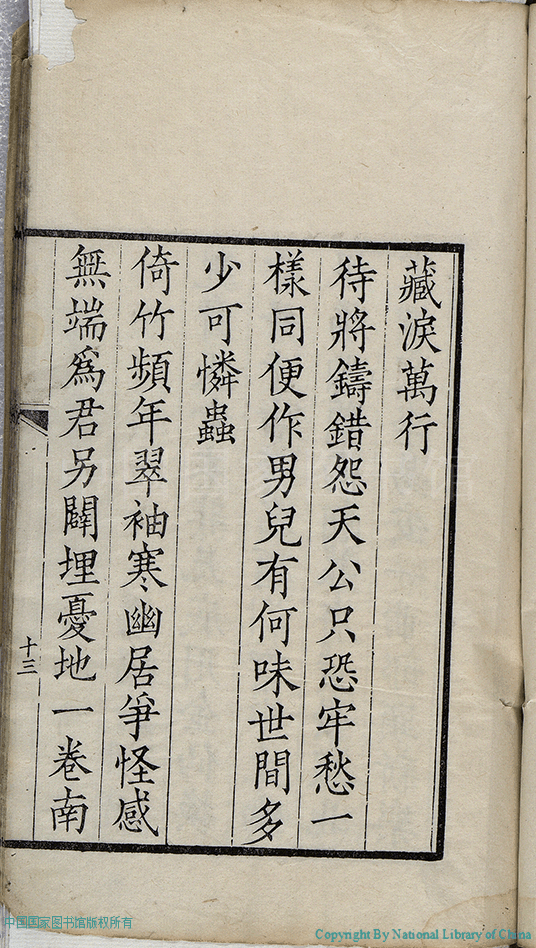 藏淚萬行
待將鑄錯怨天公只恐牢愁一
樣同便作男兒有何味世間多
少可憐蟲
倚竹頻年翠袖寒幽居爭怪感
無端爲君另闢埋憂地一卷南
十三
中国国家图书馆版权所有
Copyright By National Library of China